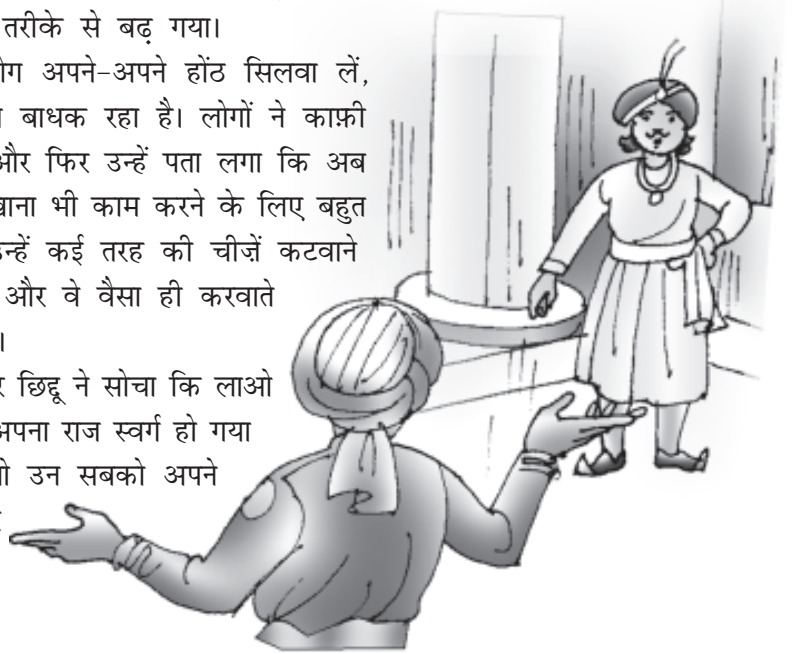 तरीके से बढ़ गया।
ोग अपने-अपने होंठ सिलवा लें,
बाधक रहा है। लोगों ने काफ़ी
और फिर उन्हें पता लगा कि अब
खाना भी काम करने के लिए बहुत
उन्हें कई तरह की चीज़ें कटवाने
और वे वैसा ही करवाते
।
छिद्दू ने सोचा कि लाओ
अपना राज स्वर्ग हो गया
उन सबको अपने